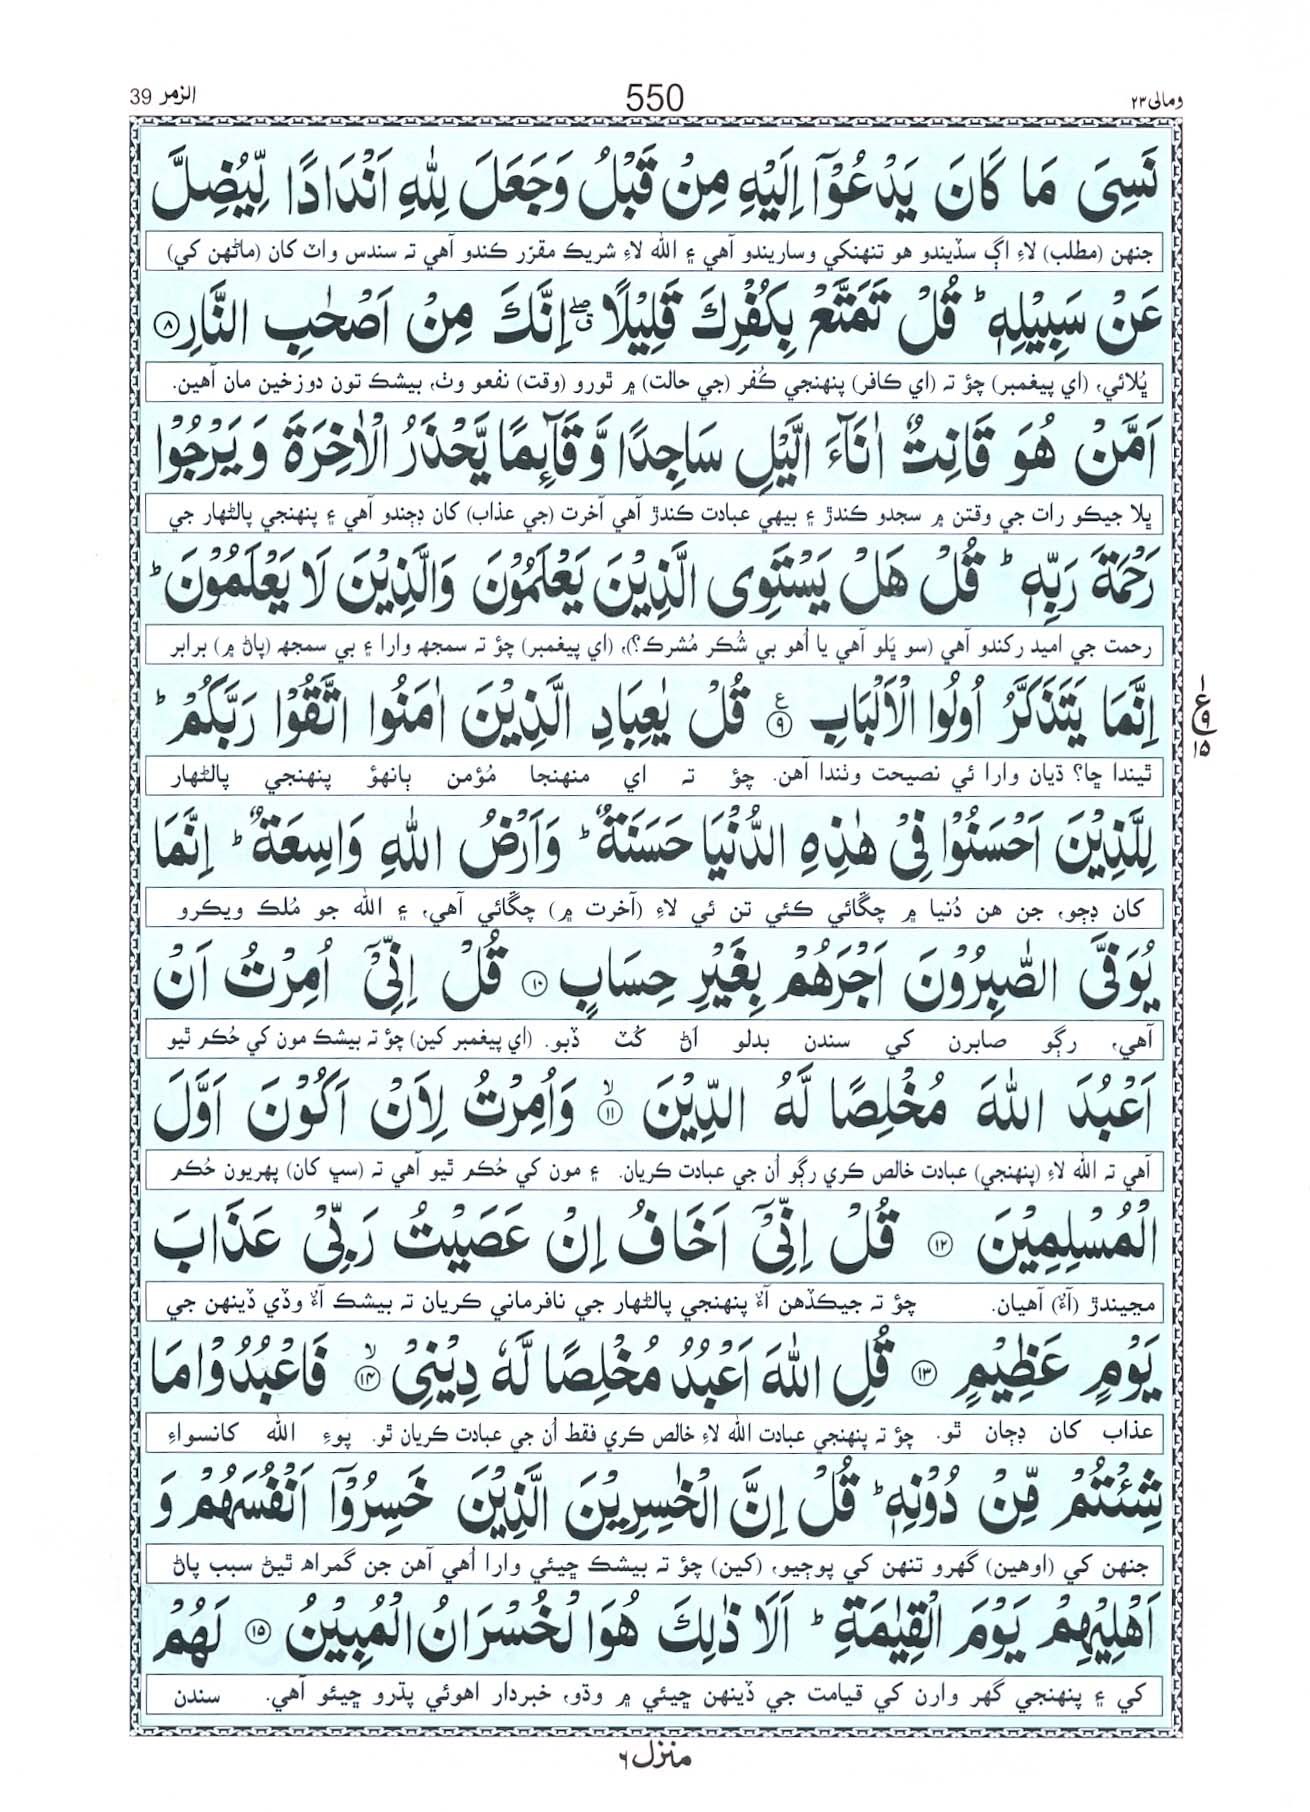 الزمر 39
550
ومالی ۲۳
نَسِیَ مَا كَانَ يَدْعُوْٓا اِلَيْهِ مِنْ قَبْلُ وَجَعَلَ لِلّٰهِ اَنْدَادًا لِّيُضِلَّ
جنهن (مطلب) لاءِ اڳ سڏيندو هو تنهنکي وساريندو آهي ۽ الله لاءِ شريڪ مقرّر ڪندو آهي تہ سندس واٽ کان (ماڻهن کي)
عَنْ سَبِيْلِهٖ ؕ قُلْ تَمَتَّعْ بِكُفْرِكَ قَلِيْلًا ۖ اِنَّكَ مِنْ اَصْحٰبِ النَّارِ ﴿۸﴾
ڀُلائي، (اي پيغمبر) چؤ تہ (اي ڪافر) پنهنجي ڪُفر (جي حالت) ۾ ٿورو (وقت) نفعو وٺ، بيشڪ تون دوزخين مان آهين.
اَمَّنْ هُوَ قَانِتٌ اٰنَآءَ الَّيْلِ سَاجِدًا وَّقَآىِٕمًا يَّحْذَرُ الْاٰخِرَةَ وَيَرْجُوْا
ڀلا جيڪو رات جي وقتن ۾ سجدو ڪندڙ ۽ بيهي عبادت ڪندڙ آهي آخرت (جي عذاب) کان ڊڄندو آهي ۽ پنهنجي پالڻهار جي
رَحْمَةَ رَبِّهٖ ؕ قُلْ هَلْ يَسْتَوِی الَّذِيْنَ يَعْلَمُوْنَ وَالَّذِيْنَ لَا يَعْلَمُوْنَ ؕ
رحمت جي اميد رکندو آهي (سو ڀَلو آهي يا اُهو بي شُڪر مُشرڪ؟)، (اي پيغمبر) چؤ تہ سمجهہ وارا ۽ بي سمجهہ (پاڻ ۾) برابر
اِنَّمَا يَتَذَكَّرُ اُولُوا الْاَلْبَابِ ﴿۹﴾ ع قُلْ يٰعِبَادِ الَّذِيْنَ اٰمَنُوا اتَّقُوْا رَبَّكُمْ ؕ
۱ ع ۹ ۱۵
ٿيندا ڇا؟ ڌيان وارا ئي نصيحت وٺندا آهن. چؤ تہ اي منهنجا مُؤمن ٻانهؤ پنهنجي پالڻهار
لِلَّذِيْنَ اَحْسَنُوْا فِیْ هٰذِهِ الدُّنْيَا حَسَنَةٌ ؕ وَاَرْضُ اللّٰهِ وَاسِعَةٌ ؕ اِنَّمَا
کان ڊڄو، جن هن دُنيا ۾ چڱائي ڪئي تن ئي لاءِ (آخرت ۾) چڱائي آهي، ۽ الله جو مُلڪ ويڪرو
يُوَفَّی الصّٰبِرُوْنَ اَجْرَهُمْ بِغَيْرِ حِسَابٍ ﴿۱۰﴾ قُلْ اِنِّیْٓ اُمِرْتُ اَنْ
آهي، رڳو صابرن کي سندن بدلو اَڻ کُٽ ڏبو. (اي پيغمبر کين) چؤ تہ بيشڪ مون کي حُڪم ٿيو
اَعْبُدَ اللّٰهَ مُخْلِصًا لَّهُ الدِّيْنَ ﴿۱۱﴾ ۙ وَاُمِرْتُ لِاَنْ اَكُوْنَ اَوَّلَ
آهي تہ الله لاءِ (پنهنجي) عبادت خالص ڪري رڳو اُن جي عبادت ڪريان. ۽ مون کي حُڪم ٿيو آهي تہ (سڀ کان) پهريون حُڪم
الْمُسْلِمِيْنَ ﴿۱۲﴾ قُلْ اِنِّیْٓ اَخَافُ اِنْ عَصَيْتُ رَبِّیْ عَذَابَ
مڃيندڙ (آءٌ) آهيان. چؤ تہ جيڪڏهن آءٌ پنهنجي پالڻهار جي نافرماني ڪريان تہ بيشڪ آءٌ وڏي ڏينهن جي
يَوْمٍ عَظِيْمٍ ﴿۱۳﴾ قُلِ اللّٰهَ اَعْبُدُ مُخْلِصًا لَّهٗ دِيْنِیْ ﴿۱۴﴾ ۙ فَاعْبُدُوْا مَا
عذاب کان ڊڄان ٿو. چؤ تہ پنهنجي عبادت الله لاءِ خالص ڪري فقط اُن جي عبادت ڪريان ٿو. پوءِ الله کانسواءِ
شِئْتُمْ مِّنْ دُوْنِهٖ ؕ قُلْ اِنَّ الْخٰسِرِيْنَ الَّذِيْنَ خَسِرُوْٓا اَنْفُسَهُمْ وَ
جنهن کي (اوهين) گهرو تنهن کي پوڄيو، (کين) چؤ تہ بيشڪ ڇيئي وارا اُهي آهن جن گمراھ ٿيڻ سبب پاڻ
اَهْلِيْهِمْ يَوْمَ الْقِيٰمَةِ ؕ اَلَا ذٰلِكَ هُوَ الْخُسْرَانُ الْمُبِيْنُ ﴿۱۵﴾ لَهُمْ
کي ۽ پنهنجي گهر وارن کي قيامت جي ڏينهن ڇيئي ۾ وڌو، خبردار اهوئي پڌرو ڇيئو آهي. سندن
منزل ٦